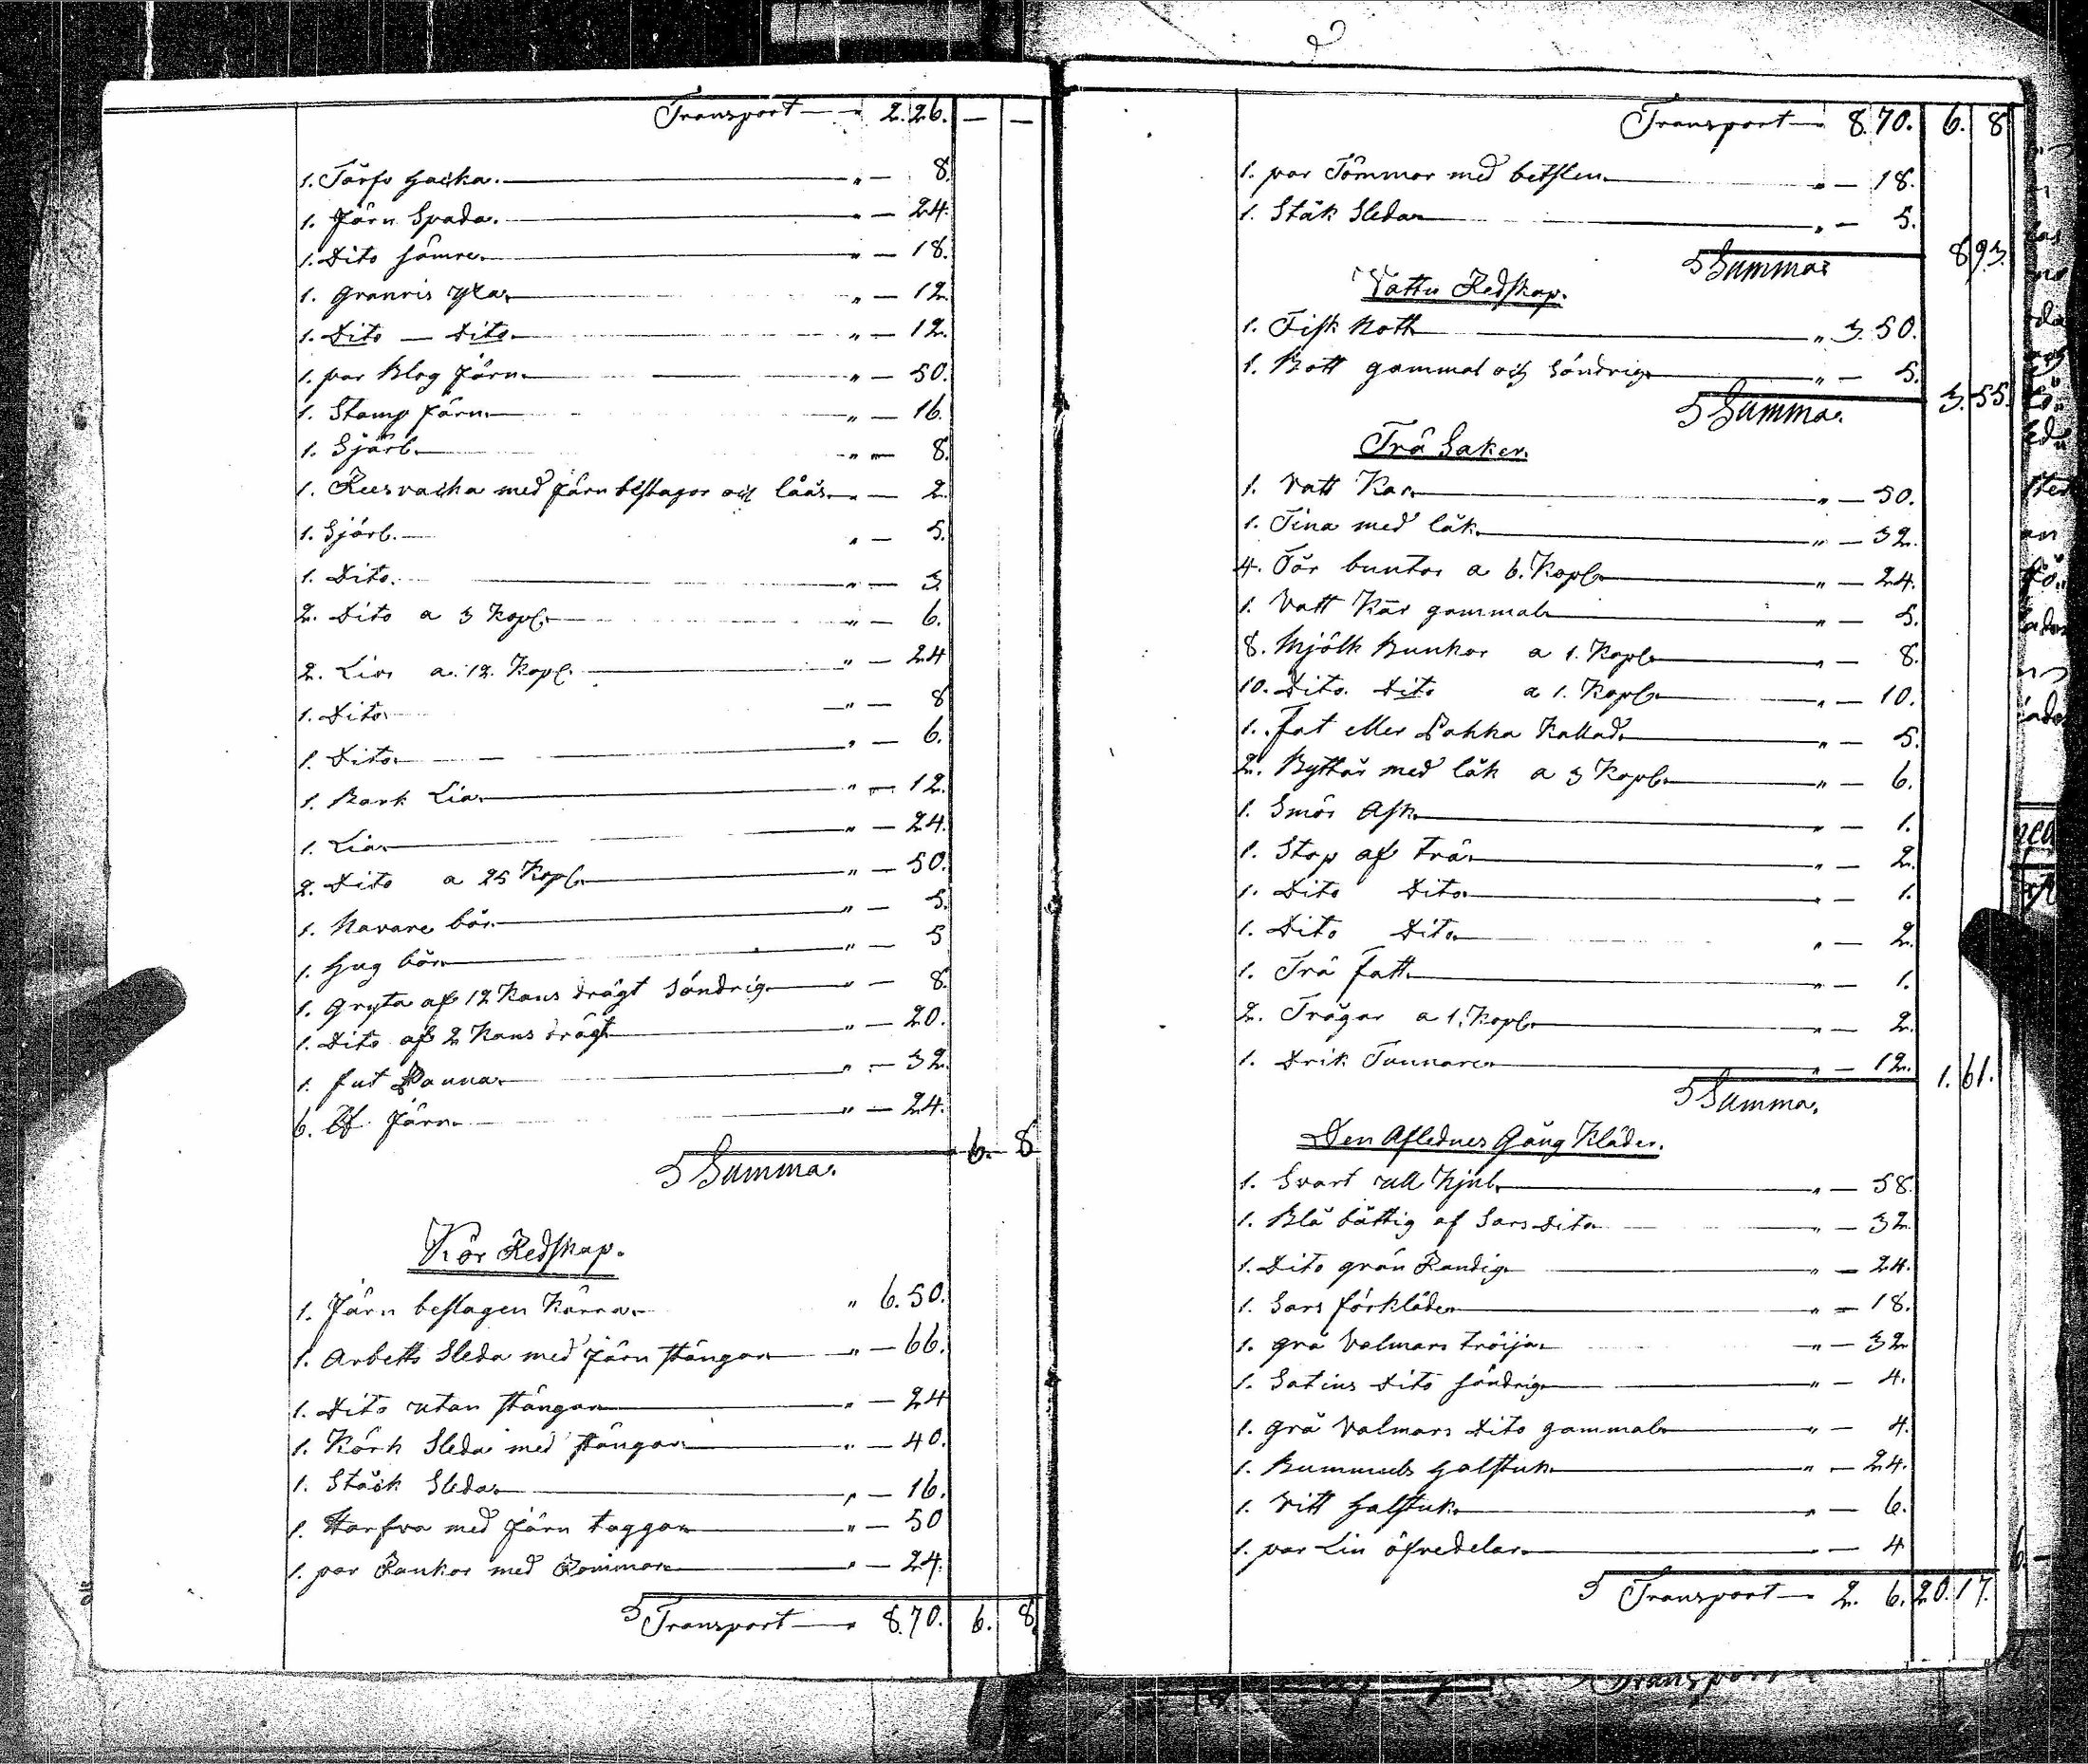 Transport — 2.26. — —
1. Tårfv hacka. — " — 8.
1. Järn Spada. — " — 24.
1. Dito hämre. — " — 18.
1. Granris yxa. — " — 12.
1. Dito — Dito. — " — 12.
1. par Plog Järn. — " — 50.
1. Stamp Järn. — " — 16.
1. Sjärb. — " — 8.
1. med Järn beslagor och låås. — " — 2.
1. Sjärb. — " — 5.
1. Dito. — " — 3.
2. Dito a 3 Kop. — " — 6.
2. Liar a. 12. Kop. — " — 24
1. Dito — " — 8
1. Dito. — " — 6.
1. Bark Lia. — " — 12.
1. Lia. — " — 24.
2. Dito a 25 Kop. — " — 50.
1. Navare bår. — " — 5.
1. Hug bår. — " — 5
1. Gryta af 12 Kans drägt Söndrig. — " — 8.
1. Dito af 2 Kans drägt — " — 20.
1. fut Panna. — " — 32.
6. ℔ Järn. — " — 24.
Summa. 6. 8
Kör Redskap.
1. Järn beslagen Kärra. — " 6.50.
1. Arbetts Släda med Järn stängor — " — 66.
1. Dito utan stängor — " — 24
1. Körk Släda med stängor — " — 40.
1. Ståck Släda. — " — 16.
1. Harfva med Järn taggar — " — 50
1. par Rankor med Rommor — " — 24.
Transport — " 8.70. 6. 8.
2
Transport — 8.70. 6. 8
1. par Tömmar med betslen. — " — 18.
1. Ståk Slädar — " — 5.
Summa 8 93.
Vattu Redskap.
1. Fisk Noth — " 3.50.
1. Bott gammal och Söndrig — " — 5.
Summa. 3. 55.
Trä Saker.
1. Vatt Kar. — " — 50.
1. Tina med låk. — " — 32.
4. Tår buntor a 6. Kop. — " — 24.
1. Vatt Kär gammal. — " — 5.
8. Mjölk Bunkor a 1. Kop. — " — 8.
10. Dito. Dito a 1. Kop. — " — 10.
1. Fat eller Pahka Kallad. — " — 5.
2. Byttår med låk a 3 Kop. — " — 6.
1. Smör Ask. — " — 1.
1. Stop af trä. — " — 2.
1. Dito Dito. — " — 1.
1. Dito Dito. — " — 2.
1. Trä fatt. — " — 1.
2. Trågar a 1. Kop. — " — 2.
1. Drik Tunnare. — " — 12.
Summa. 1. 61.
Den Aflednes Gång Kläder.
1. Svart ull Kjul. — " — 58.
1. Blå båttig af Sars Dito — " — 32
1. Dito grön Randig. — " — 24.
1. Sars förkläde. — " — 18.
1. grå Valmars tröija. — " — 32
1. Satins Dito söndrig — " — 4.
1. grå Valmars Dito gammal. — " — 4.
1. Bummuls halstuk. — " — 24.
1. Vitt halstuk. — " — 6.
1. par Lin öfredelar. — " — 4
Transport — 2. 6. 20. 17.